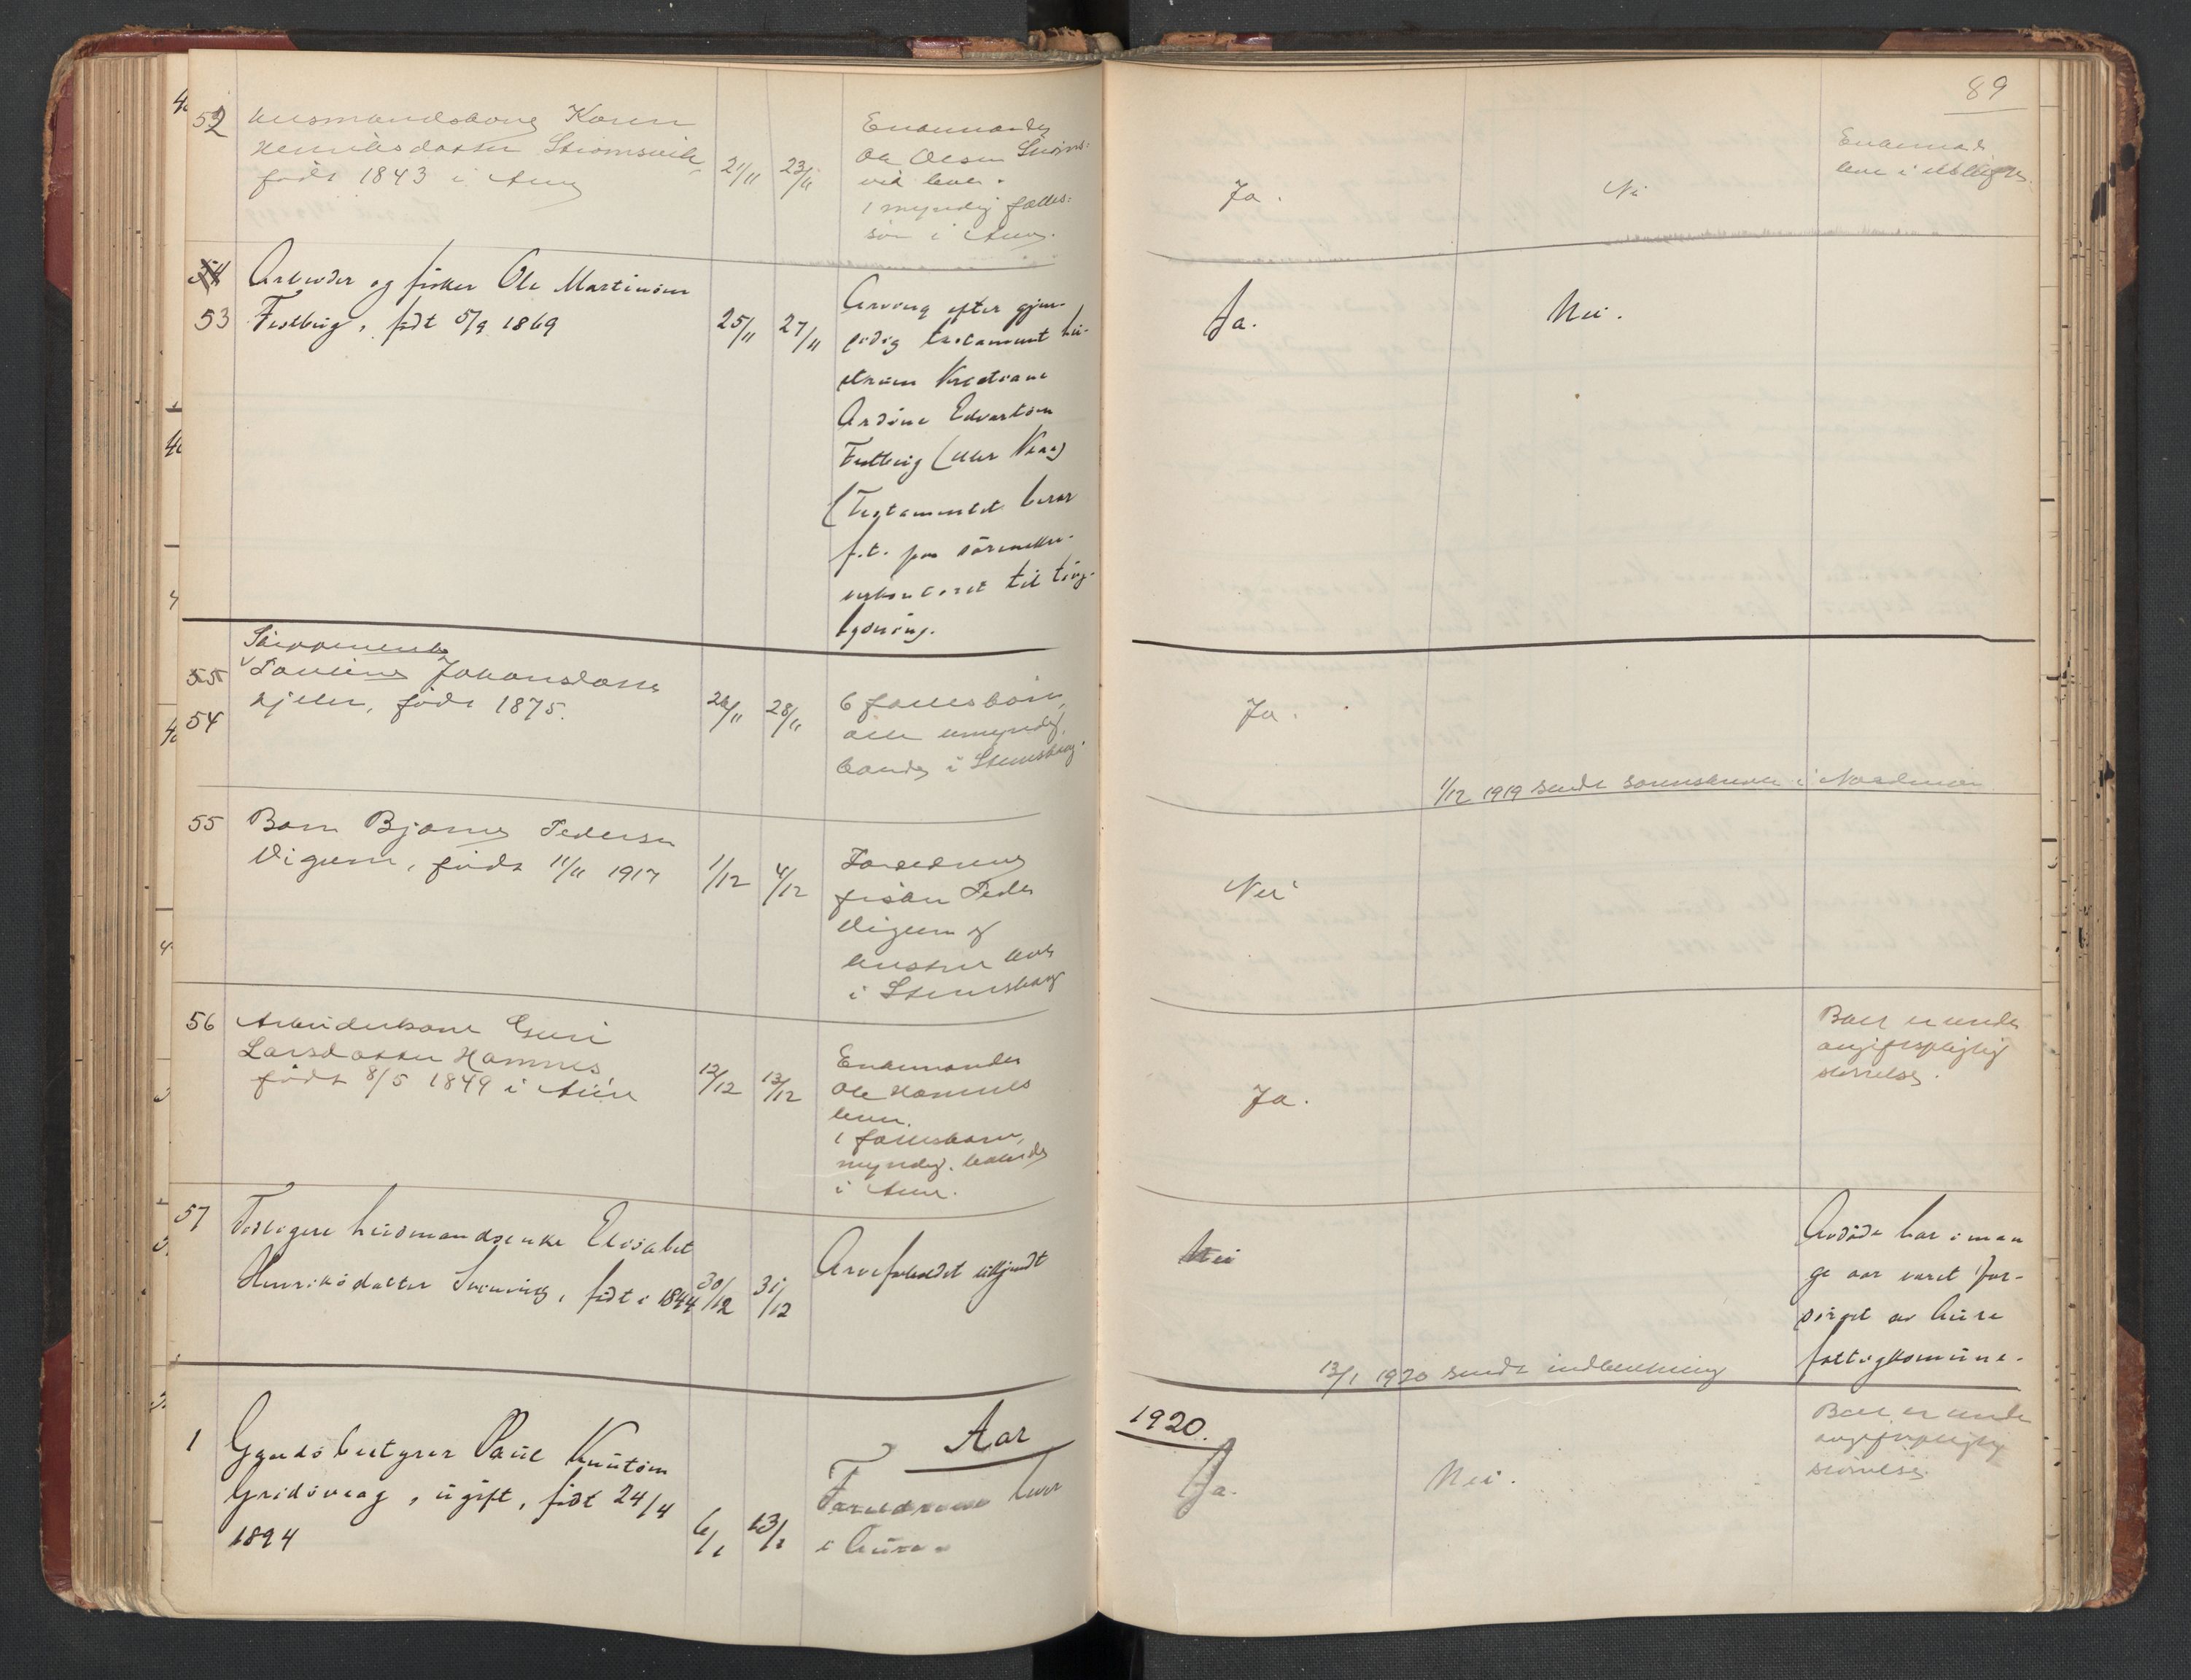 89
52 Husmandskone Karen
Henriksdatter Strømsvik,
født 1843 i Aure
21/11 23/11
Enkemand
Ole Olsen Strøms-
vik lever.
1 myndig fælles-
søn i Aure.
Ja.
Nei
Enkemand
lever i
54
53
Arbeider og fisker Ole Martinsen
Festberg, født 5/9 1869
25/11 27/11
Arving efter gjen-
sidig testament hu-
struen
Ardine Edvartsen
Festberg (eller
(Testamentet beror
f.t. paa sorenskri-
verkontoret til ting-
lysning.
Ja.
Nei.
55
54
Pauline Johansdatter
Kjeller, født 1875.
26/11 28/11
6 fællesbørn,
alle umyndig,
boende i Stemshaug.
Ja.
1/12 1919 sendt sorenskriveren i Nordmør
55 Barn Bjarne Pedersen
Vigum, født 11/11 1917
1/12 4/12
Forældrene
fisker Peder
Vigum og
hustru lever
i Stemshaug
Nei
56 Arbeiderkone Guri
Larsdatter Hamnes,
født 8/5 1849 i Aure
12/12 13/12
Enkemanden
Ole Hamnes
lever.
1 fællesbarn,
myndig, boende
i Aure.
Ja.
Boet er under
avgiftspligtig
størrelse.
57 Føderaad husmandsenke Elisabet
Henriksdatter, født i 1844
30/12 31/12
Arveforholdet ukjendt
Nei
Avdøde har i man
ge aar været for-
sørget av Aure
fattigkommune.
13/1 1920 sendt indberetning
Aar 1920.
1 Gaardsbestyrer Paul Knutsen
Gridsvaag, ugift, født 24/4
1894
6/1 13/1
Forældrene lever
i Aure.
Ja.
Nei.
Boet er under
avgiftspligtig
størrelse.